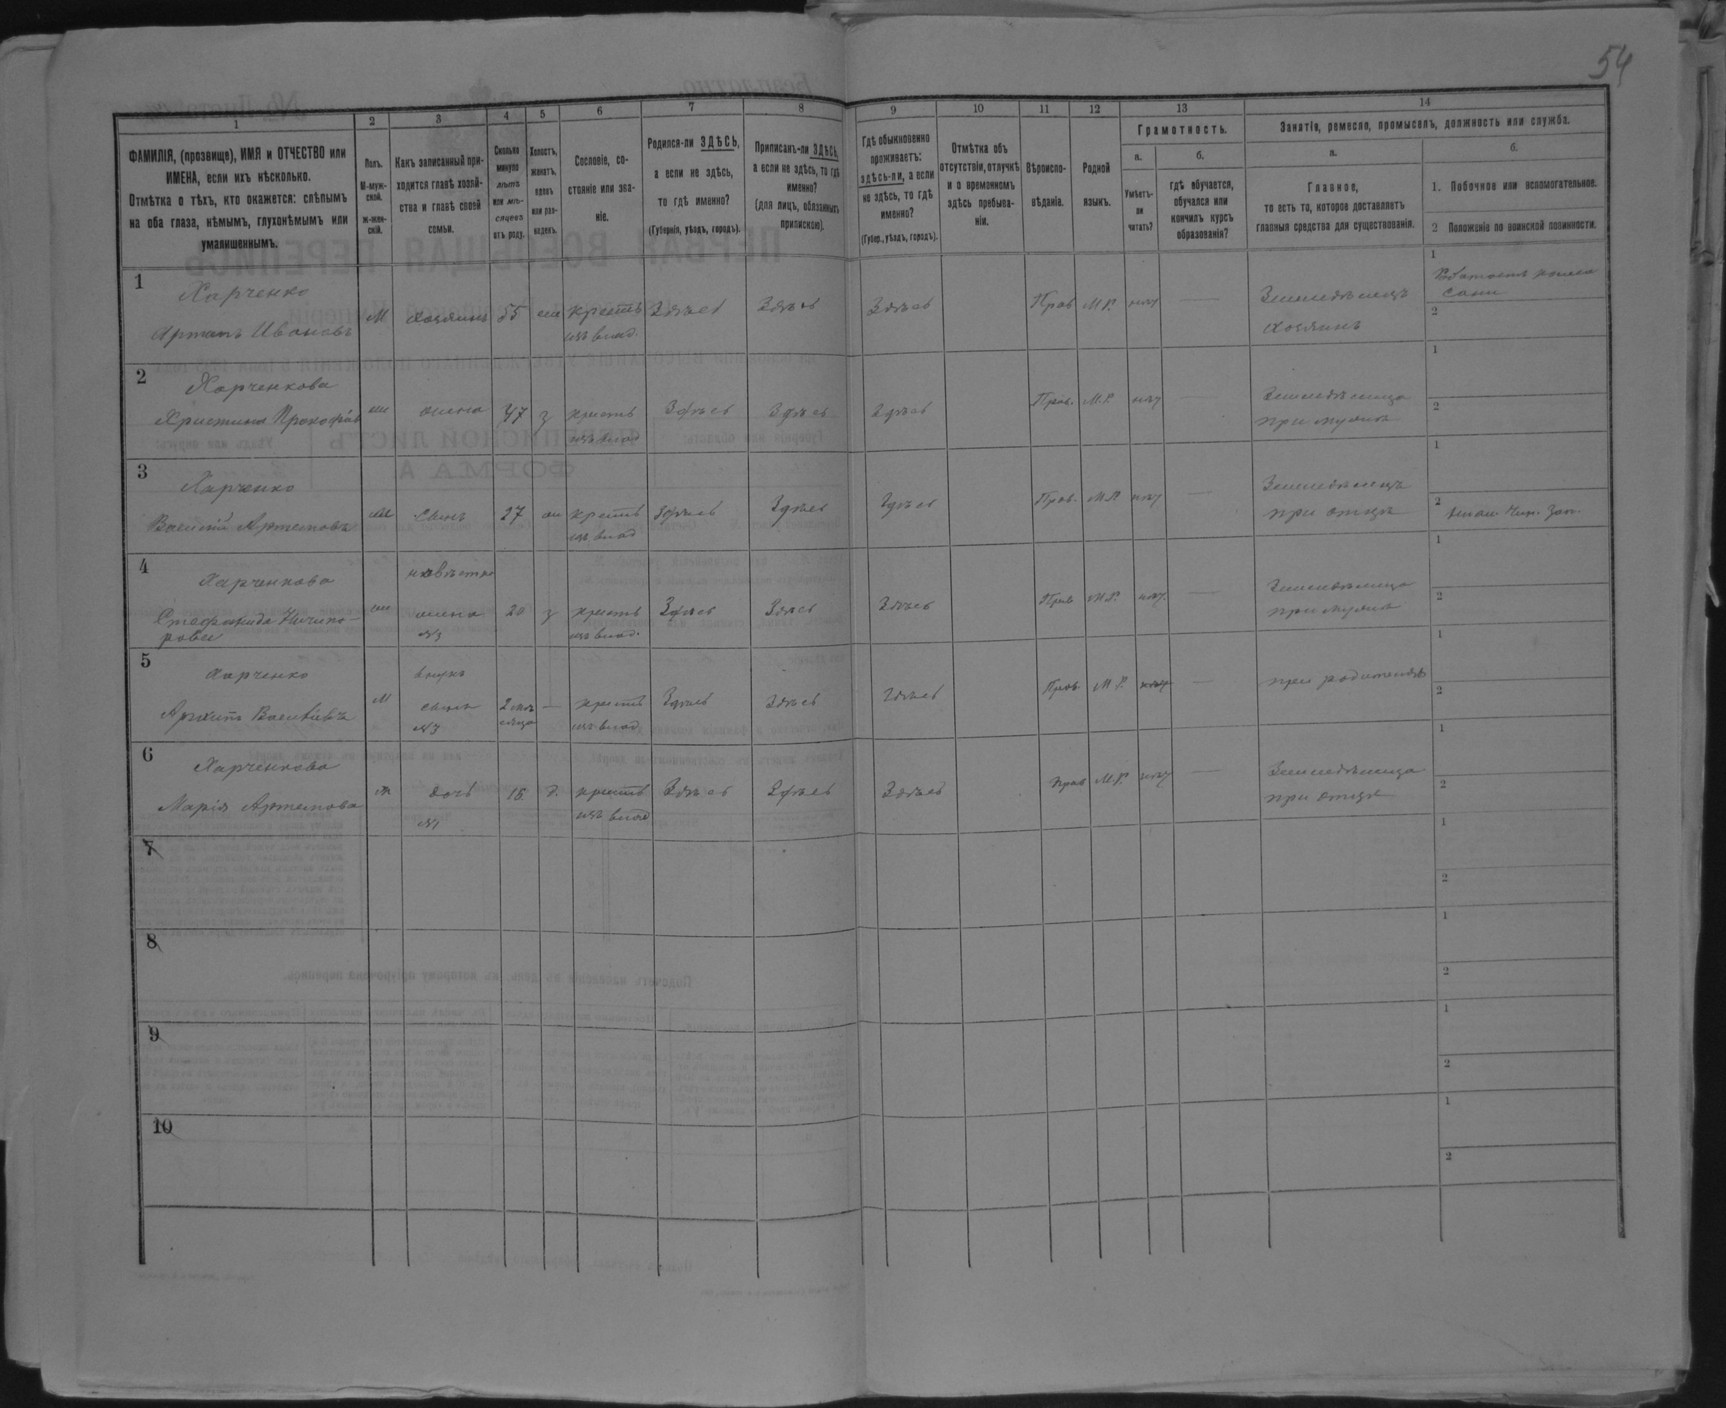 54
1 2 3 4 5 6 7 8 9 10 11 12 13 14
ФАМИЛІЯ, (прозвище), ИМЯ и ОТЧЕСТВО или
ИМЕНА, если ихъ нѣсколько.
Отмѣтка о тѣхъ, кто окажется: слѣпымъ
на оба глаза, нѣмымъ, глухонѣмымъ или
умалишеннымъ.
Полъ.
М-муж-
ской.
Ж-жен-
скій.
Какъ записанный при-
ходится главѣ хозяй-
ства и главѣ своей
семьи.
Сколько
минуло
лѣтъ
или мѣ-
сяцевъ
отъ роду.
Холостъ,
женатъ,
вдовъ
или раз-
веденъ.
Сословіе, со-
стояніе или зва-
ніе.
Родился-ли ЗДѢСЬ,
а если не здѣсь,
то гдѣ именно?
(Губернія, уѣздъ, городъ).
Приписанъ-ли ЗДѢСЬ,
а если не здѣсь, то гдѣ
именно?
(для лицъ, обязанныхъ
припискою).
Гдѣ обыкновенно
проживаетъ:
здѣсь-ли, а если
не здѣсь, то гдѣ
именно?
(Губер., уѣздъ, городъ).
Отмѣтка объ
отсутствіи, отлучкѣ
и о временномъ
здѣсь пребыва-
ніи.
Вѣроиспо-
вѣданіе.
Родной
языкъ.
Грамотность.
а.
Умѣетъ-
ли
читать?
б.
Гдѣ обучается,
обучался или
кончилъ курсъ
образованія?
Занятіе, ремесло, промыселъ, должность или служба.
а.
Главное,
то есть то, которое доставляетъ
главныя средства для существованія.
б.
1. Побочное или вспомогательное.
2 Положеніе по воинской повинности.
1
Харченко
Артемъ Ивановъ
М
хозяинъ
55
крестъ
изъ влад.
Здѣсь
Здѣсь
Здѣсь
Прав
М.Р.
нѣт
Земледѣлецъ
хозяинъ
1
сани
2
2
Харченкова
Христина Прокофьев
жена
47
з
крестъ
изъ влад
Здѣсь
Здѣсь
Здѣсь
Прав.
М.Р.
нѣт
Земледѣлица
при мужѣ
1
2
3
Харченко
Василій Артемовъ
сынъ
27
крестъ
изъ влад
Здѣсь
Здѣсь
Здѣсь
Прав.
М.Р.
нѣт
Земледѣлецъ
при отцѣ
1
2
4
Харченкова
Стефанида Ничипо-
рова
невѣстка
жена
№3
20
з
крестъ
изъ влад.
Здѣсь
Здѣсь
Здѣсь
Прав
М.Р.
нѣт.
Земледѣлица
при мужѣ
1
2
5
Харченко
Архипъ Васильевъ
М
внукъ
сынъ
№3
2 мѣ-
сяца
—
крестъ
изъ влад.
Здѣсь
Здѣсь
Здѣсь
Прав.
М.Р.
нѣт
при родителяхъ
1
2
6
Харченкова
Марія Артемова
ж
дочь
№1
15
д.
крестъ
изъ влад
Здѣсь
Здѣсь
Здѣсь
Прав
М.Р.
нѣт
Земледѣлица
при отцѣ
1
2
7
1
2
8
1
2
9
1
2
10
1
2